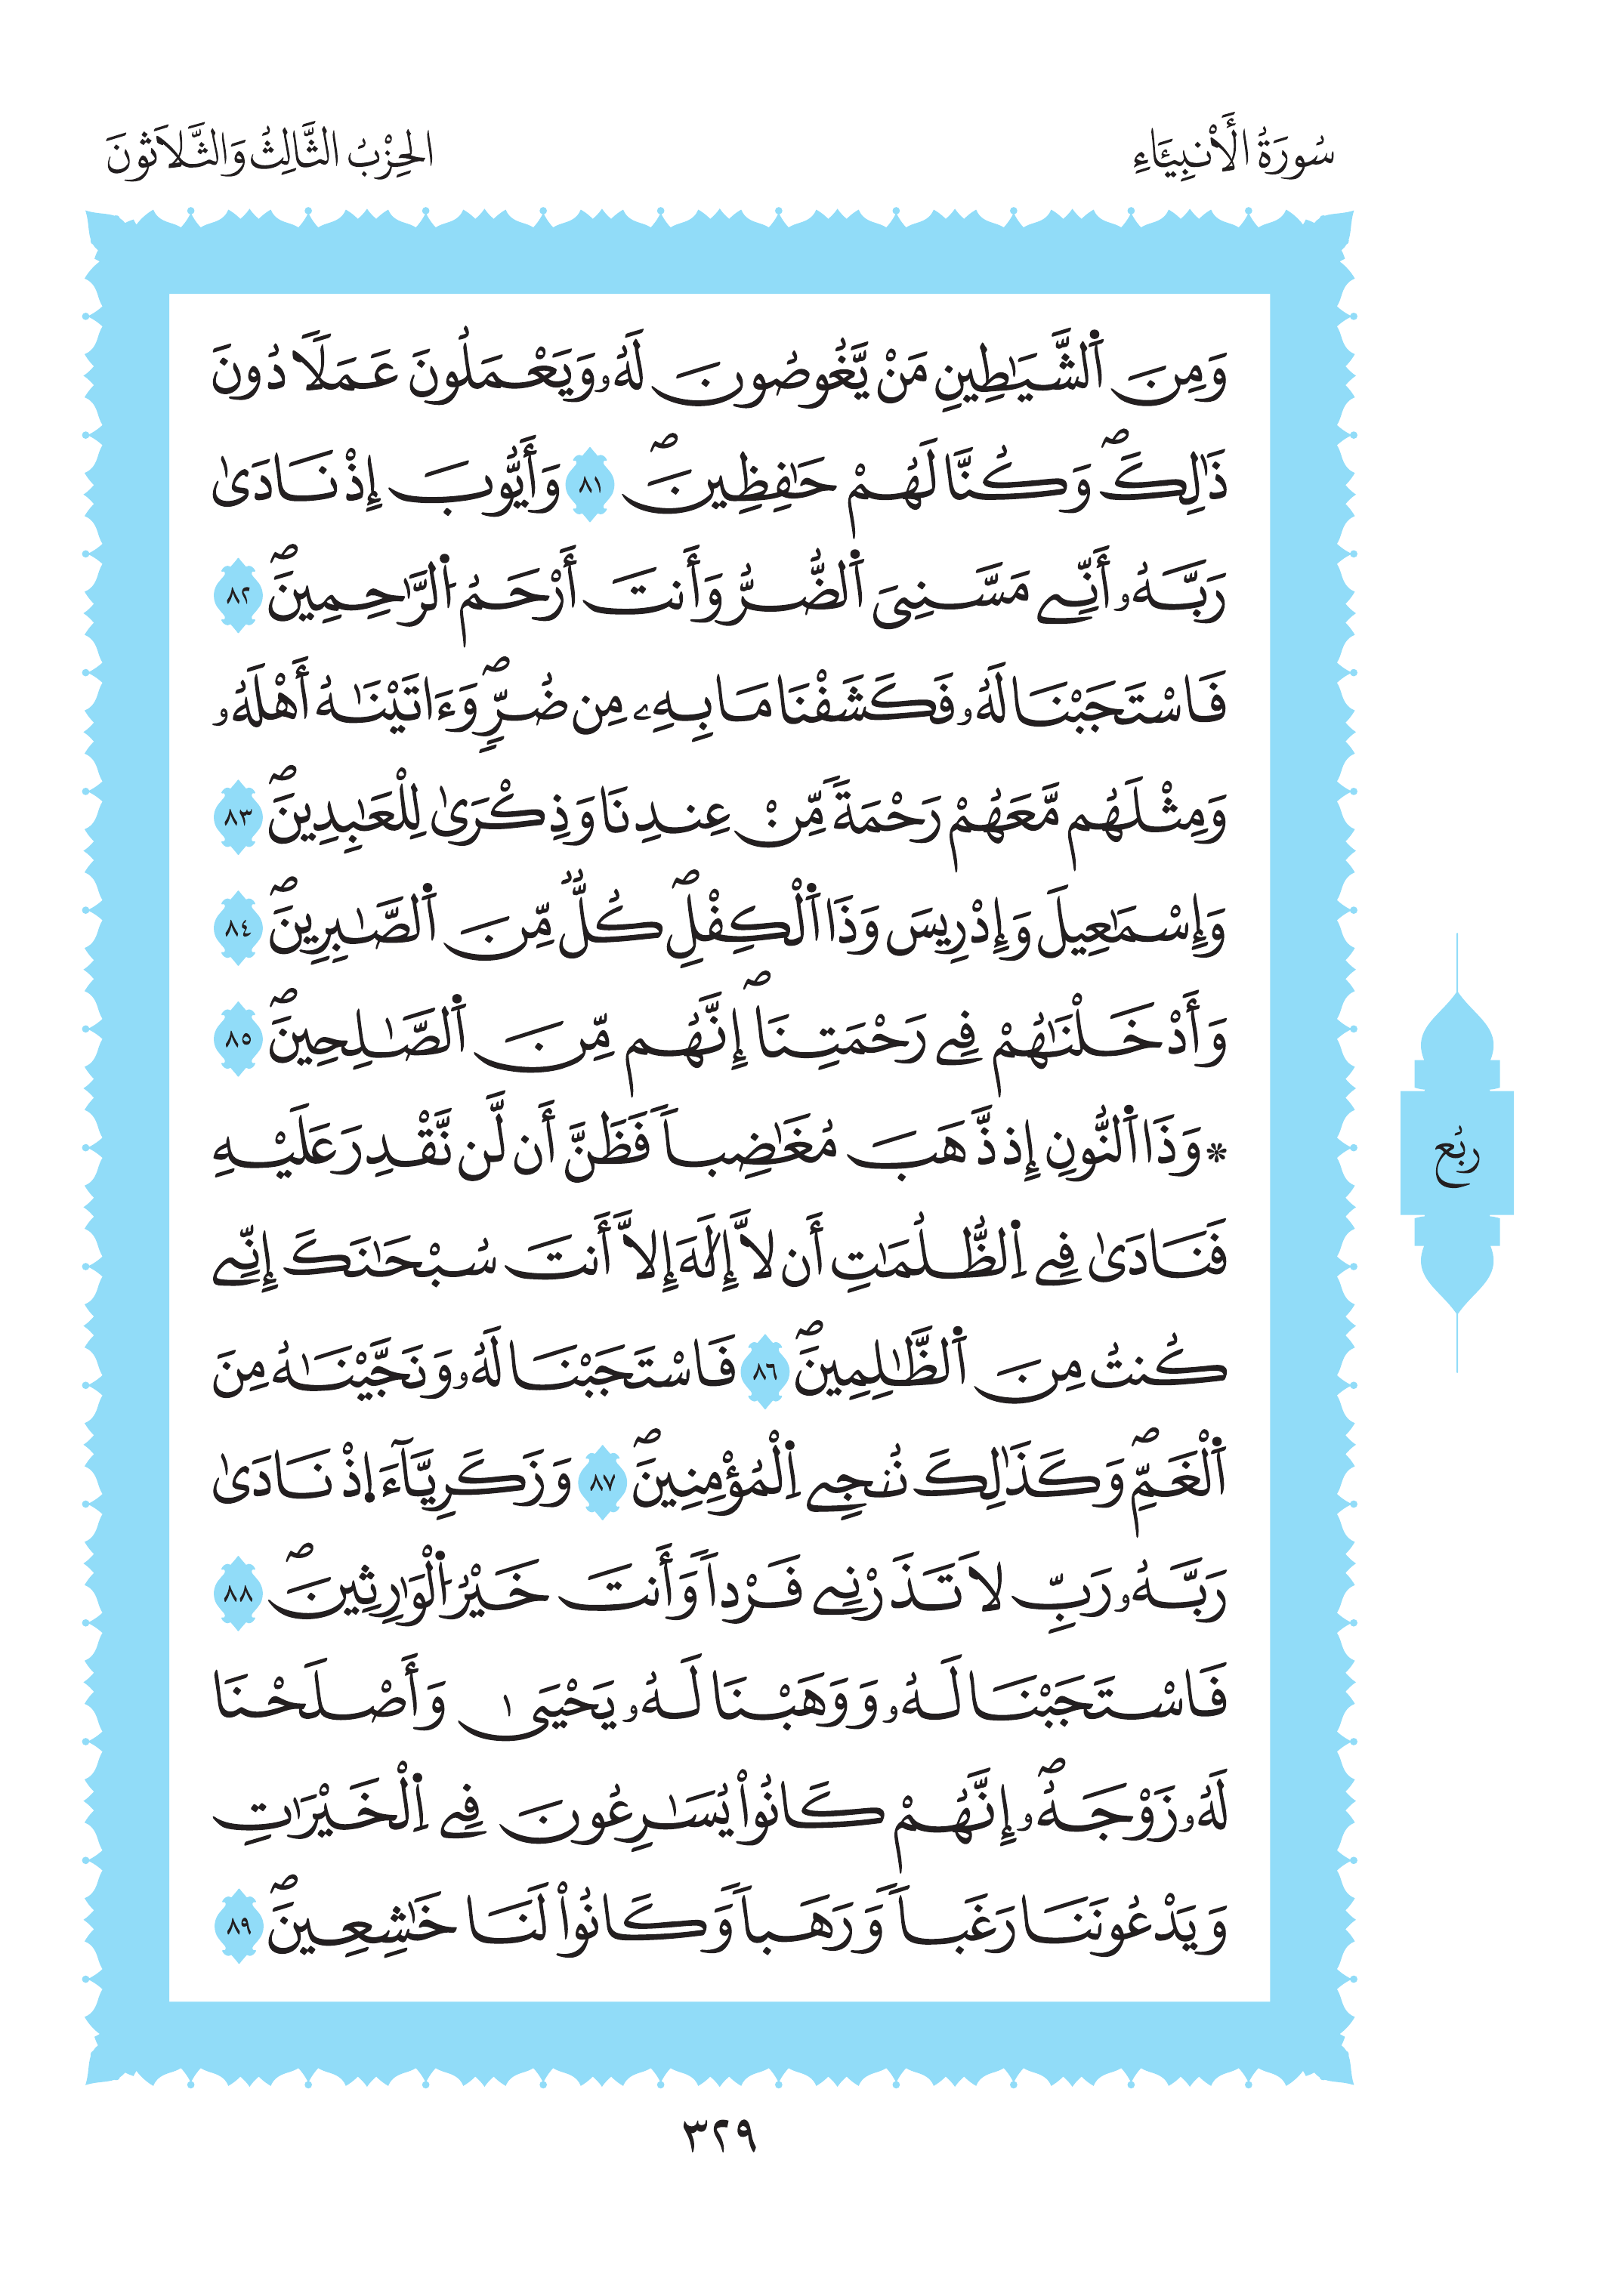 سُورَةُ الْأَنبِيَاءِ الحِزْبُ الثَّالِثُ وَالثَّلَاثُونَ
وَمِنَ اَ۬لشَّيَٰطِينِ مَنْ يَّغُوصُونَ لَهُۥ وَيَعْمَلُونَ عَمَلاٗ دُونَ
ذَٰلِكَۖ وَكُنَّا لَهُمْ حَٰفِظِينَۖ ٨١ وَأَيُّوبَ إِذْ نَادَىٰ
رَبَّهُۥٓ أَنِّے مَسَّنِيَ اَ۬لضُّرُّ وَأَنتَ أَرْحَمُ اُ۬لرَّٰحِمِينَۖ ٨٢
فَاسْتَجَبْنَا لَهُۥ فَكَشَفْنَا مَا بِهِۦ مِن ضُرّٖۖ وَءَاتَيْنَٰهُ أَهْلَهُۥ
وَمِثْلَهُم مَّعَهُمْ رَحْمَةٗ مِّنْ عِندِنَا وَذِكْرَىٰ لِلْعَٰبِدِينَۖ ٨٣
وَإِسْمَٰعِيلَ وَإِدْرِيسَ وَذَا اَ۬لْكِفْلِۖ كُلّٞ مِّنَ اَ۬لصَّٰبِرِينَۖ ٨٤
وَأَدْخَلْنَٰهُمْ فِے رَحْمَتِنَاۖ إِنَّهُم مِّنَ اَ۬لصَّٰلِحِينَۖ ٨٥
۞ وَذَا اَ۬لنُّونِ إِذ ذَّهَبَ مُغَٰضِباٗ فَظَنَّ أَن لَّن نَّقْدِرَ عَلَيْهِ
فَنَادَىٰ فِے اِ۬لظُّلُمَٰتِ أَن لَّآ إِلَٰهَ إِلَّآ أَنتَ سُبْحَٰنَكَ إِنِّے
كُنتُ مِنَ اَ۬لظَّٰلِمِينَۖ ٨٦ فَاسْتَجَبْنَا لَهُۥ وَنَجَّيْنَٰهُ مِنَ
اَ۬لْغَمِّۖ وَكَذَٰلِكَ نُنجِے اِ۬لْمُؤْمِنِينَۖ ٨٧ وَزَكَرِيَّآءَ اِ۪ذْ نَادَىٰ
رَبَّهُۥ رَبِّ لَا تَذَرْنِے فَرْداٗ وَأَنتَ خَيْرُ اُ۬لْوَٰرِثِينَۖ ٨٨
فَاسْتَجَبْنَا لَهُۥ وَوَهَبْنَا لَهُۥ يَحْيَىٰ وَأَصْلَحْنَا
لَهُۥ زَوْجَهُۥٓۖ إِنَّهُمْ كَانُواْ يُسَٰرِعُونَ فِے اِ۬لْخَيْرَٰتِ
وَيَدْعُونَنَا رَغَباٗ وَرَهَباٗ وَكَانُواْ لَنَا خَٰشِعِينَۖ ٨٩
ربُع
٣٢٩